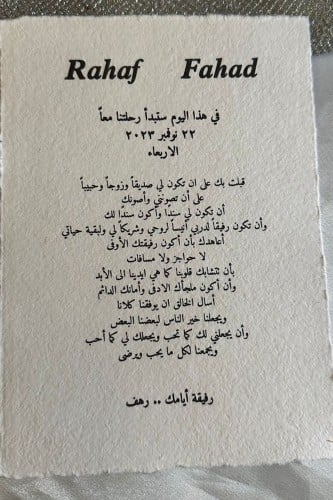 Rahaf Fahad
في هذا اليوم ستبدأ رحلتنا معاً
٢٢ نوفمبر ٢٠٢٣
الاربعاء
قبلت بك على ان تكون لي صديقاً وزوجاً وحبيباً
على أن تصونني وأصونك
أن تكون لي سنداً وأكون سنداً لك
وأن تكون رفيقاً لدربي أنيساً لروحي وشريكاً لي ولبقية حياتي
أعاهدك بأن أكون رفيقتك الأوفى
لا حواجز ولا مسافات
بأن تتشابك قلوبنا كما هي ايدينا الى الأبد
وأن أكون ملجأك الادفى وأمانك الدائم
أسال الخالق ان يوفقنا كلانا
ويجعلنا خير الناس لبعضنا البعض
وأن يجعلني لك كما تحب ويجعلك لي كما أحب
ويجمعنا لكل ما يحب ويرضى
رفيقة أيامك .. رهف